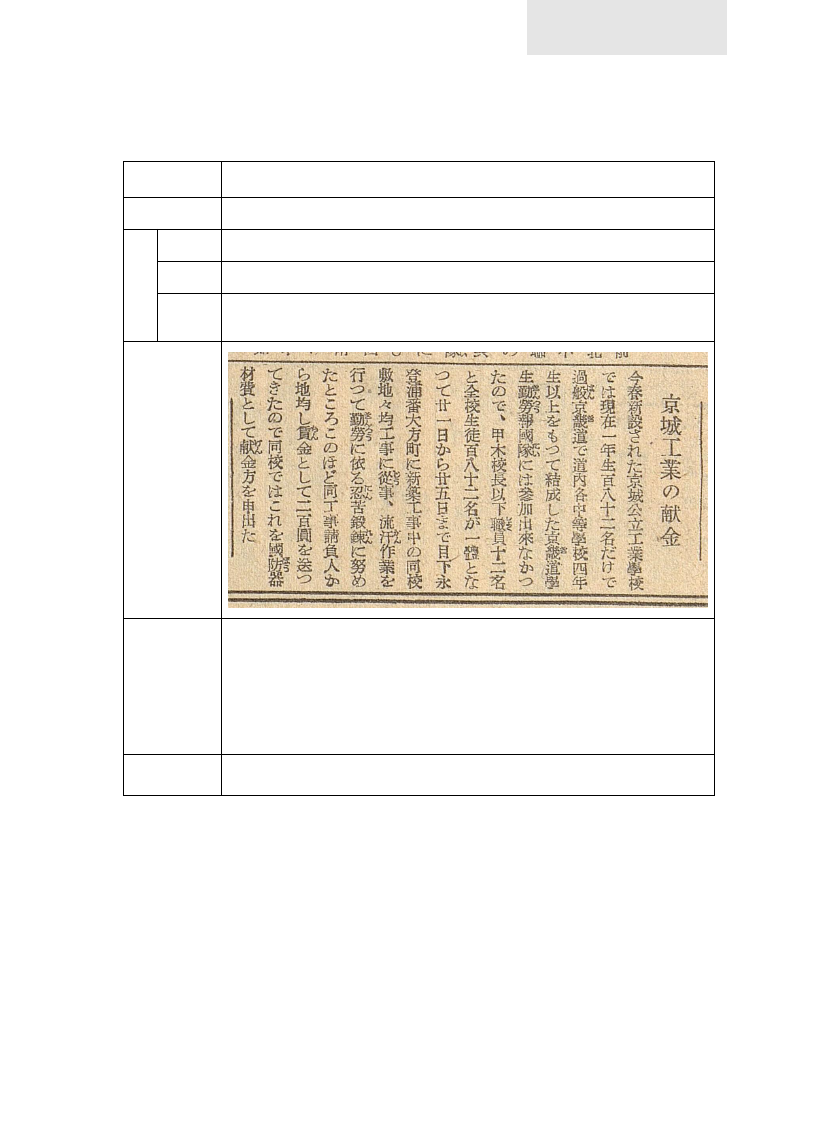 京城工業の献金
今春新設された京城公立工業學校
では現在一年生百八十二名だけで
過般京畿道で道内各中等學校四年
生以上をもつて結成した京畿道學
生勤勞報國隊には參加出來なかつ
たので、甲木校長以下職員十二名
と全校生徒百八十二名が一體とな
つて廿一日から廿五日まで目下永
登浦番大方町に新築工事中の同校
敷地々均工事に從事、流汗作業を
行つて勤勞に依る忍苦鍛鍊に努め
たところこのほど同工事請負人か
ら地均し賃金として二百圓を送つ
てきたので同校ではこれを國防器
材費として献金方を申出た